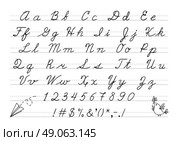 Aa Bb Cc Dd Ee
Ff Gg Hh Ii Jj Kk
Ll Mm Nn Oo Pp
Qq Rr Ss Tt Uu
Vv Ww Xx Yy Zz
1 2 3 4 5 6 7 8 9 0
!#$%&'()*,-./
© Фотобанк Лори
lori.ru/49063145